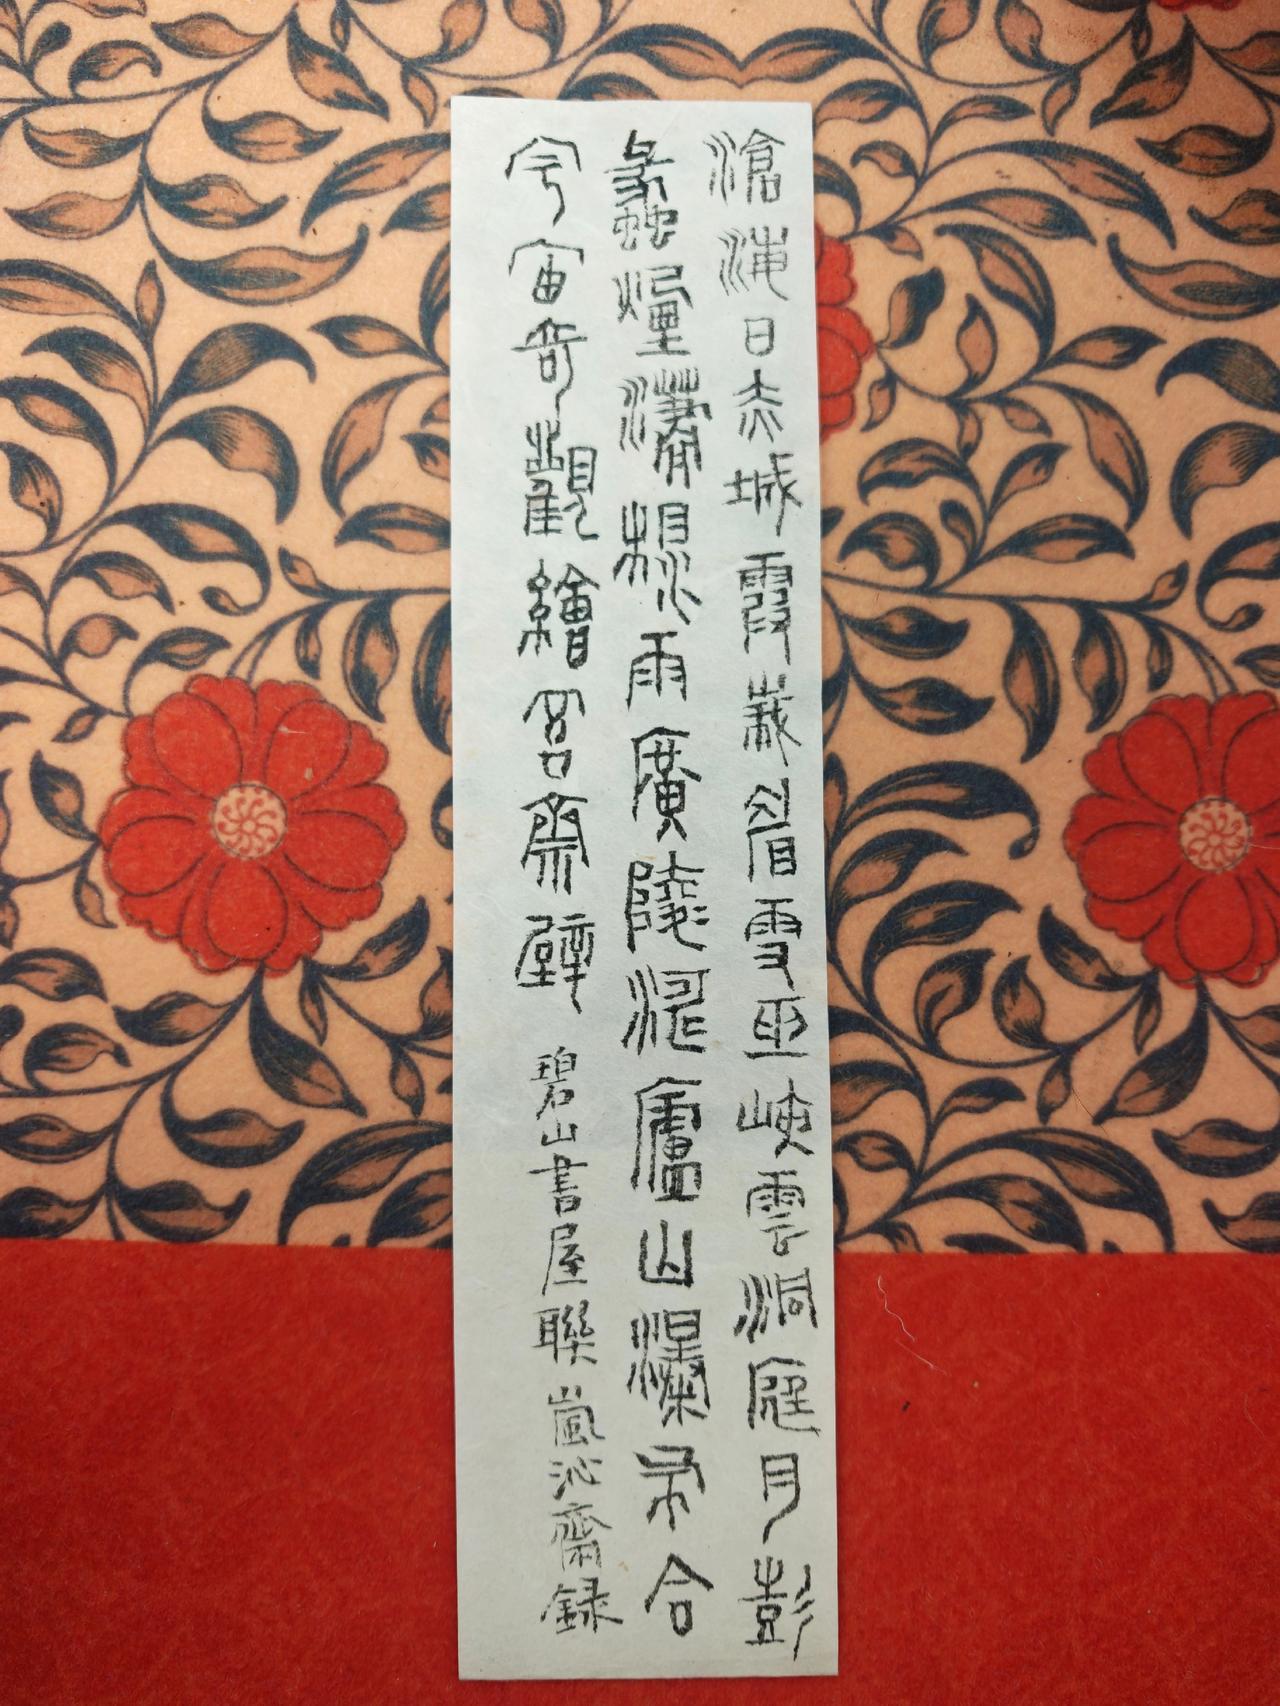 滄海日赤城霞峩眉雪巫峽雲洞庭月彭
蠡煙瀟湘雨廣陵潮廬山瀑布合
宇宙奇觀繪吾齋壁 碧山書屋聯 嵐沁齋録